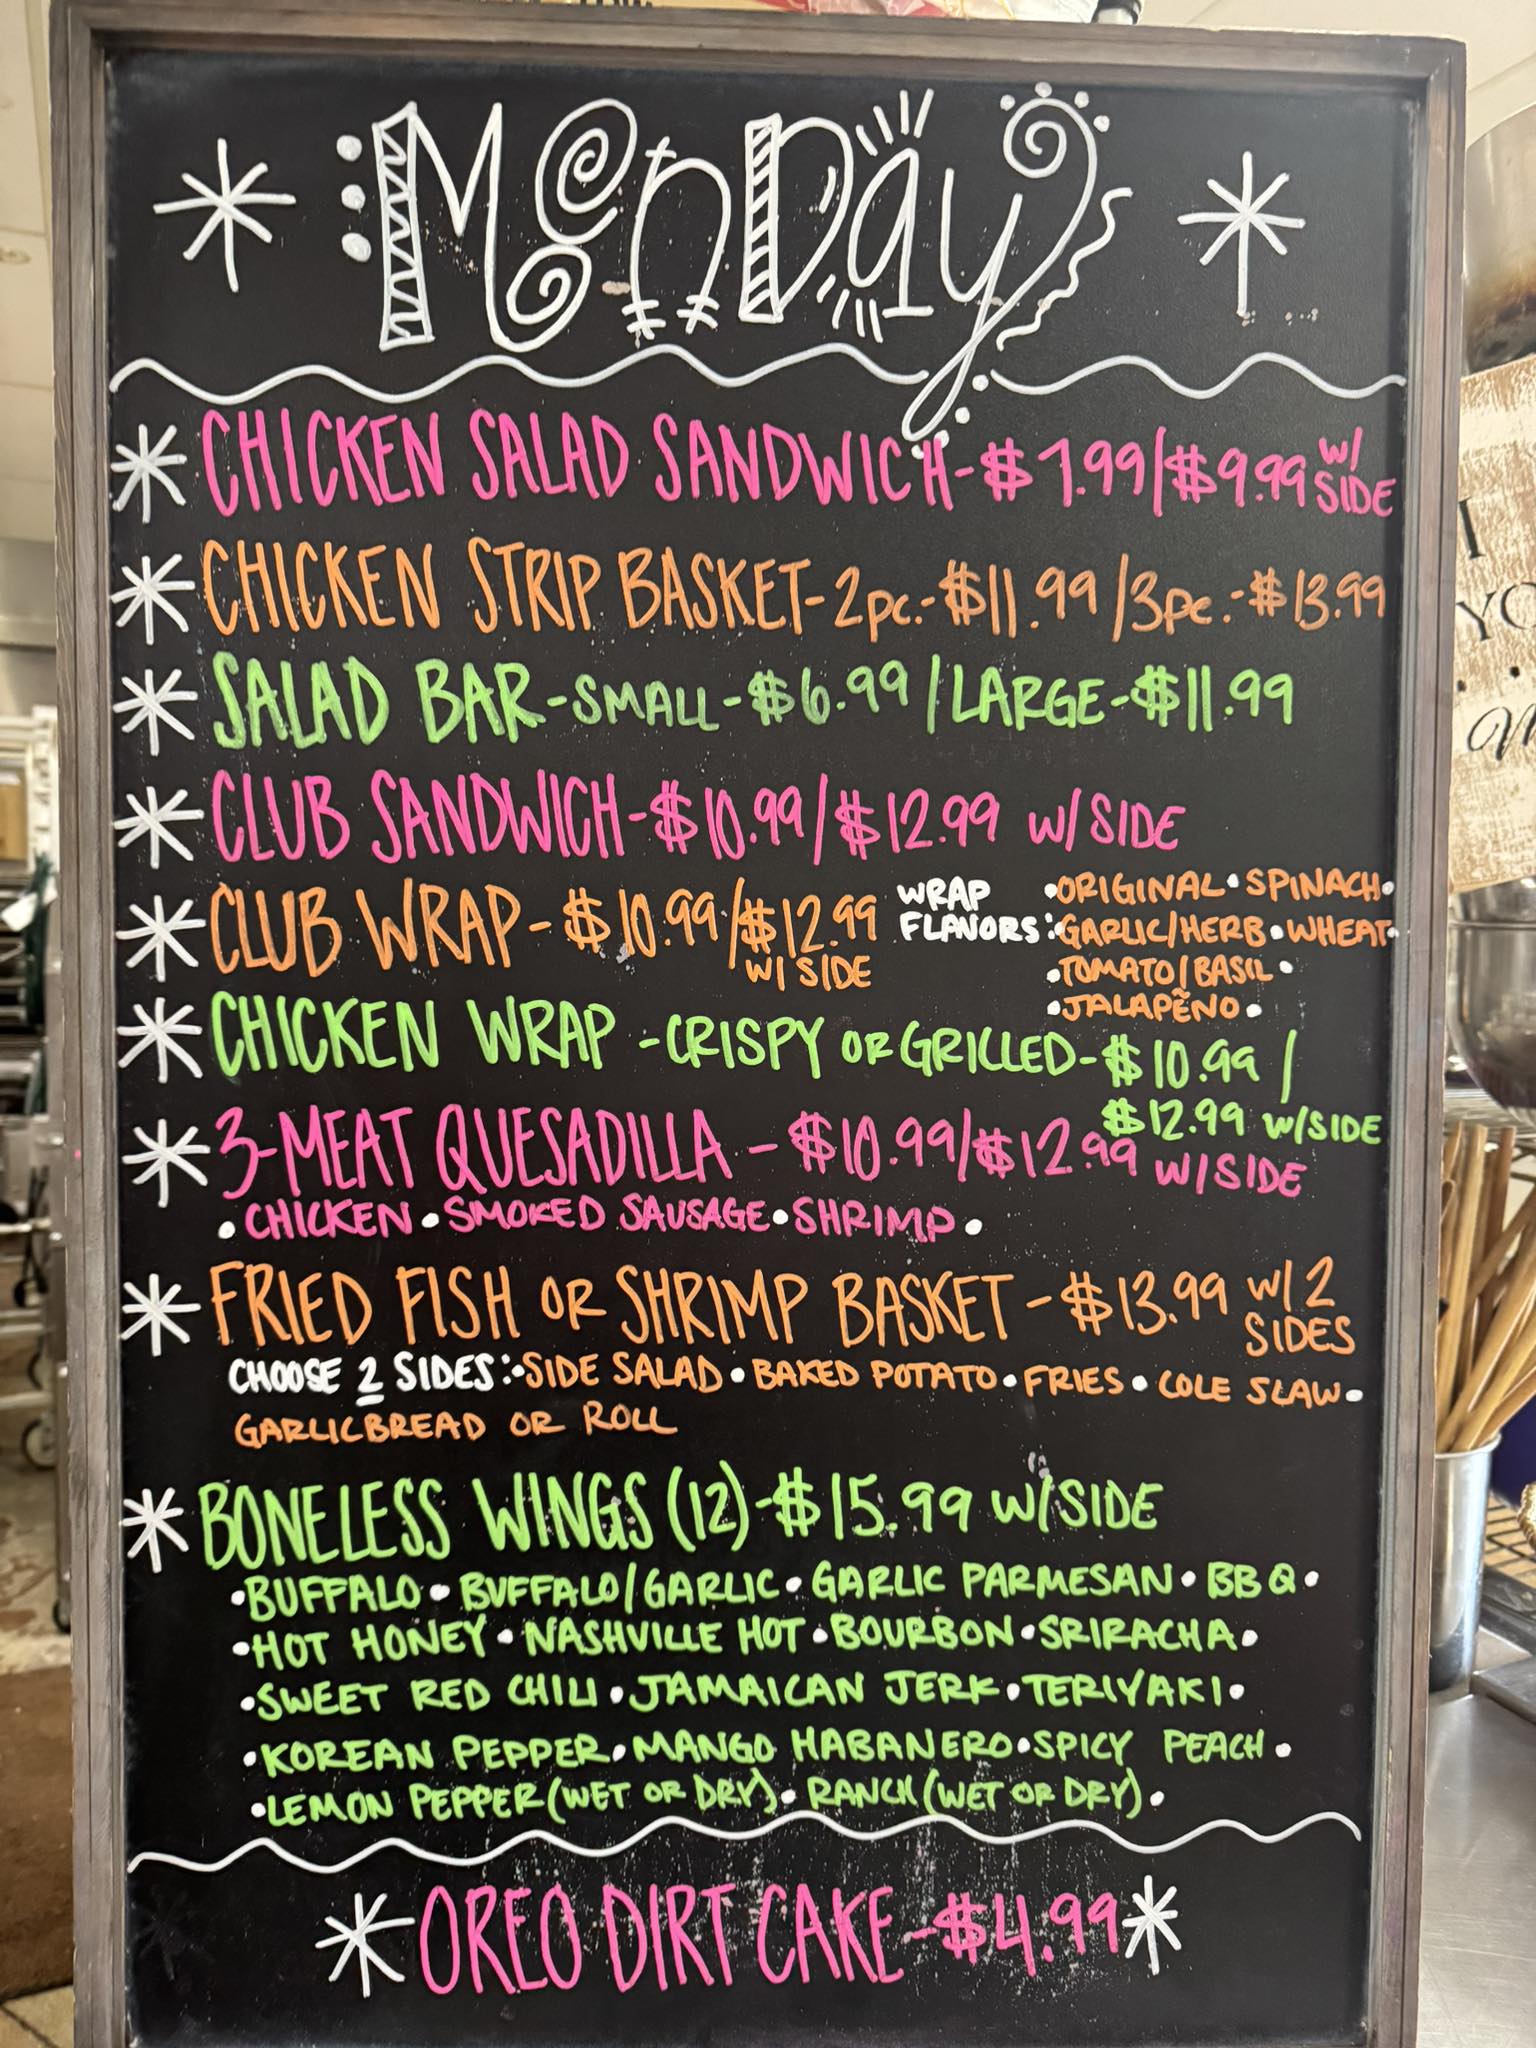 Monday
CHICKEN SALAD SANDWICH-$7.99/$9.99 W/ SIDE
CHICKEN STRIP BASKET-2pc.-$11.99/3pc.-$13.99
SALAD BAR-SMALL-$6.99/LARGE-$11.99
CLUB SANDWICH-$10.99/$12.99 W/SIDE
CLUB WRAP-$10.99/$12.99 W/SIDE
WRAP FLAVORS: •ORIGINAL•SPINACH•
•GARLIC/HERB•WHEAT•
•TOMATO/BASIL•
•JALAPEÑO•
CHICKEN WRAP-CRISPY OR GRILLED-$10.99/
$12.99 W/SIDE
3-MEAT QUESADILLA-$10.99/$12.99 W/SIDE
•CHICKEN•SMOKED SAUSAGE•SHRIMP•
FRIED FISH OR SHRIMP BASKET-$13.99 W/2 SIDES
CHOOSE 2 SIDES:•SIDE SALAD•BAKED POTATO•FRIES•COLE SLAW•
GARLICBREAD OR ROLL
BONELESS WINGS (12)-$15.99 W/SIDE
•BUFFALO•BUFFALO/GARLIC•GARLIC PARMESAN•BBQ•
•HOT HONEY•NASHVILLE HOT•BOURBON•SRIRACHA•
•SWEET RED CHILI•JAMAICAN JERK•TERIYAKI•
•KOREAN PEPPER•MANGO HABANERO•SPICY PEACH•
•LEMON PEPPER(WET OR DRY)•RANCH(WET OR DRY)•
OREO DIRT CAKE-$4.99